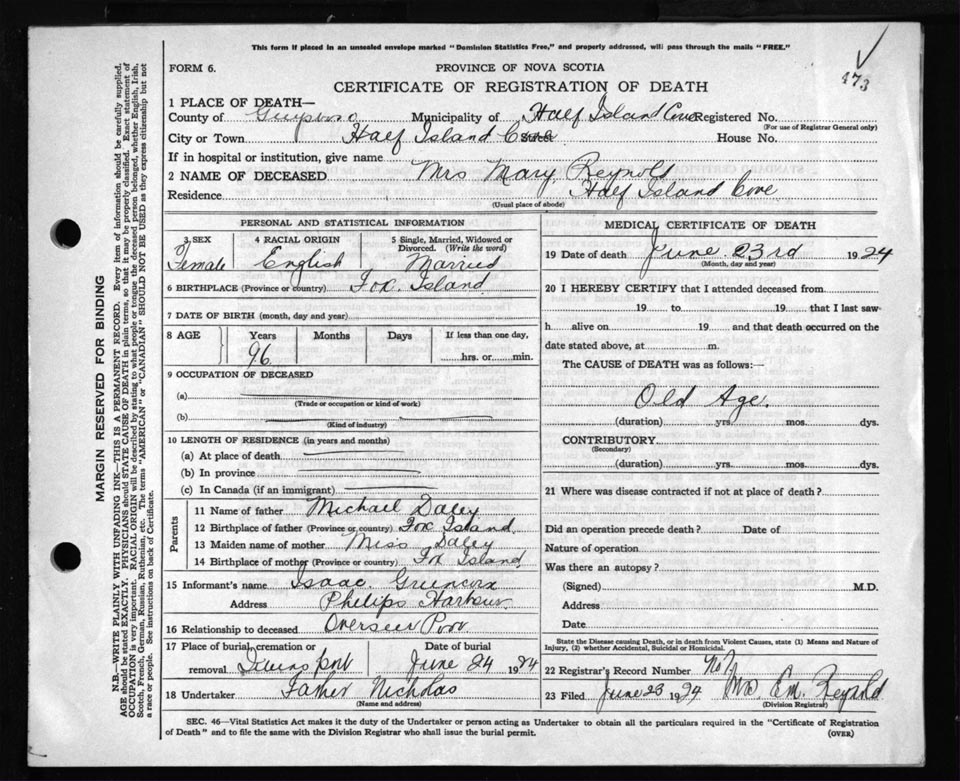 This form if placed in an unsealed envelope marked "Dominion Statistics Free," and properly addressed, will pass through the mails "FREE."
473
FORM 6.
PROVINCE OF NOVA SCOTIA
CERTIFICATE OF REGISTRATION OF DEATH
1 PLACE OF DEATH—
County of Guysboro Municipality of Half Island Cove Registered No.
(For use of Registrar General only)
City or Town Half Island Cove Street House No.
If in hospital or institution, give name
2 NAME OF DECEASED Mrs Mary Reynold
Residence Half Island Cove
(Usual place of abode)
PERSONAL AND STATISTICAL INFORMATION
3 SEX 4 RACIAL ORIGIN 5 Single, Married, Widowed or Divorced. (Write the word)
Female English Married
6 BIRTHPLACE (Province or country) Fox Island
7 DATE OF BIRTH (month, day and year)
8 AGE Years Months Days If less than one day,
96 hrs. or min.
9 OCCUPATION OF DECEASED
(a)
(Trade or occupation or kind of work)
(b)
(Kind of industry)
10 LENGTH OF RESIDENCE (in years and months)
(a) At place of death
(b) In province
(c) In Canada (if an immigrant)
Parents
11 Name of father Michael Daley
12 Birthplace of father (Province or country) Fox Island
13 Maiden name of mother Miss Daley
14 Birthplace of mother (Province or country) Fox Island
15 Informant's name Isaac Greencorn
Address Philips Harbour
16 Relationship to deceased Overseer Poor
17 Place of burial, cremation or removal Date of burial
June 24 1924
18 Undertaker Father Nicholas
(Name and address)
MEDICAL CERTIFICATE OF DEATH
19 Date of death June 23rd 1924
(Month, day and year)
20 I HEREBY CERTIFY that I attended deceased from
19 to 19 that I last saw
h alive on 19 and that death occurred on the
date stated above, at m.
The CAUSE of DEATH was as follows:—
Old Age.
(duration) yrs. mos. dys.
CONTRIBUTORY
(Secondary)
(duration) yrs. mos. dys.
21 Where was disease contracted if not at place of death?
Did an operation precede death? Date of
Nature of operation
Was there an autopsy?
(Signed) M.D.
Address
Date
State the Disease causing Death, or in death from Violent Causes, state (1) Means and Nature of Injury, (2) whether Accidental, Suicidal or Homicidal.
22 Registrar's Record Number No 7
23 Filed June 23 1924 Mrs. Em. Reynold
(Division Registrar)
SEC. 46—Vital Statistics Act makes it the duty of the Undertaker or person acting as Undertaker to obtain all the particulars required in the "Certificate of Registration
of Death" and to file the same with the Division Registrar who shall issue the burial permit. (OVER)
MARGIN RESERVED FOR BINDING
N.B.—WRITE PLAINLY WITH UNFADING INK—THIS IS A PERMANENT RECORD. Every item of information should be carefully supplied.
AGE should be stated EXACTLY. PHYSICIANS should STATE CAUSE OF DEATH in plain terms, so that it may be properly classified. Exact statement of
OCCUPATION is very important. RACIAL ORIGIN will be described by stating to what people or tongue the deceased person belonged, whether English, Irish,
Scotch, French, German, Russian, Ruthenian, etc. The terms "AMERICAN" or "CANADIAN" SHOULD NOT BE USED as they express citizenship but not
a race or people. See instructions on back of Certificate.